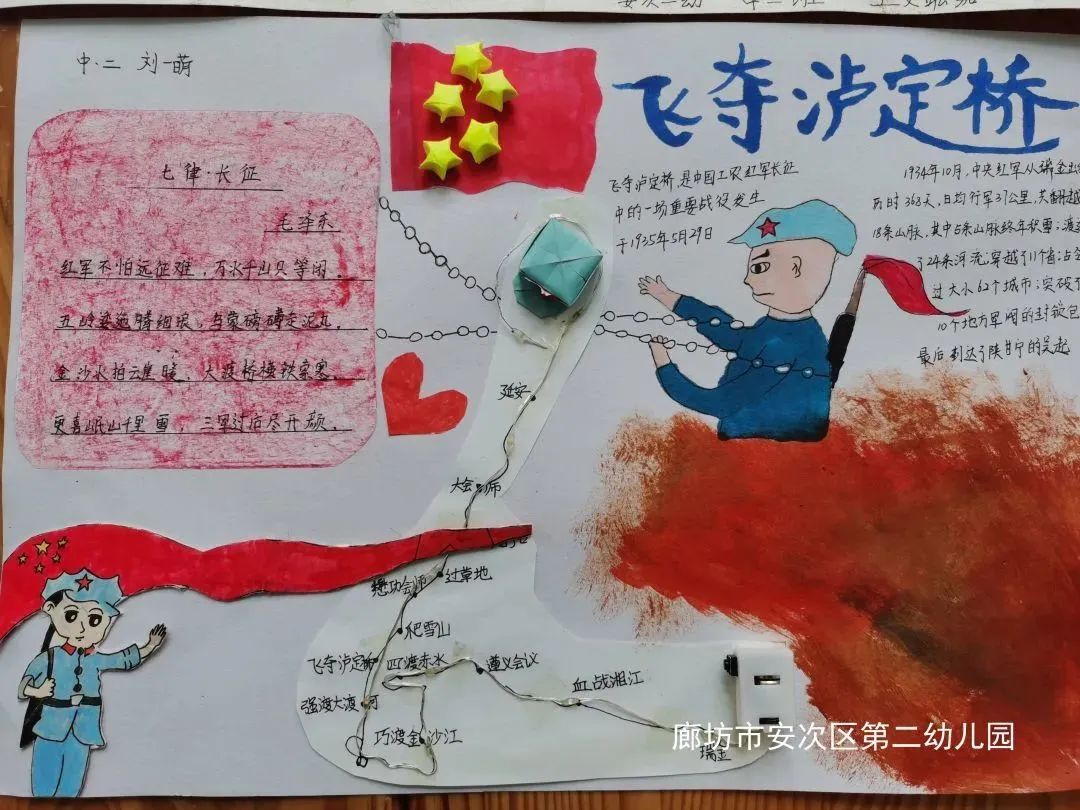 中.二 刘一萌
七律·长征
毛泽东
红军不怕远征难，万水千山只等闲。
五岭逶迤腾细浪，乌蒙磅礴走泥丸。
金沙水拍云崖暖，大渡桥横铁索寒。
更喜岷山千里雪，三军过后尽开颜。
飞夺泸定桥
飞夺泸定桥，是中国工农红军长征
中的一场重要战役发生
于1935年5月29日
1934年10月，中央红军从瑞金出
历时368天，日均行军37公里，共翻越
18条山脉，其中5条山脉终年积雪；渡过
了24条河流；穿越了11个省；占领
过大小62个城市；突破了
10个地方军阀的封锁包
最后到达了陕甘宁的吴起
延安
大会师
过草地
懋功会师
爬雪山
飞夺泸定桥
四渡赤水
遵义会议
血战湘江
强渡大渡河
巧渡金沙江
瑞金
廊坊市安次区第二幼儿园